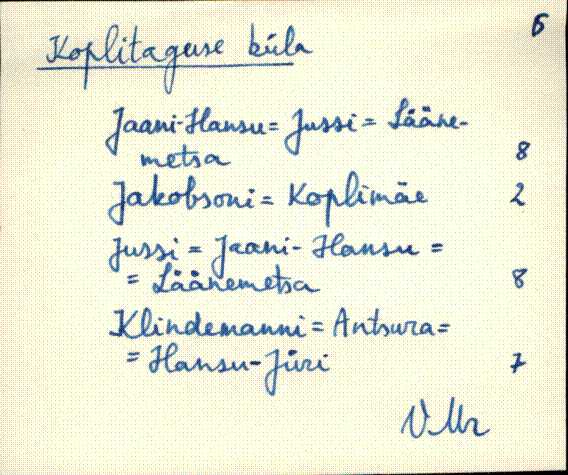 6
Koplitaguse küla
Jaani-Hansu = Jussi = Lääne-
metsa 8
Jakobsoni = Koplimäe 2
Jussi = Jaani-Hansu =
= Läänemetsa 8
Klindemanni = Antsura =
= Hansu-Jüri 7